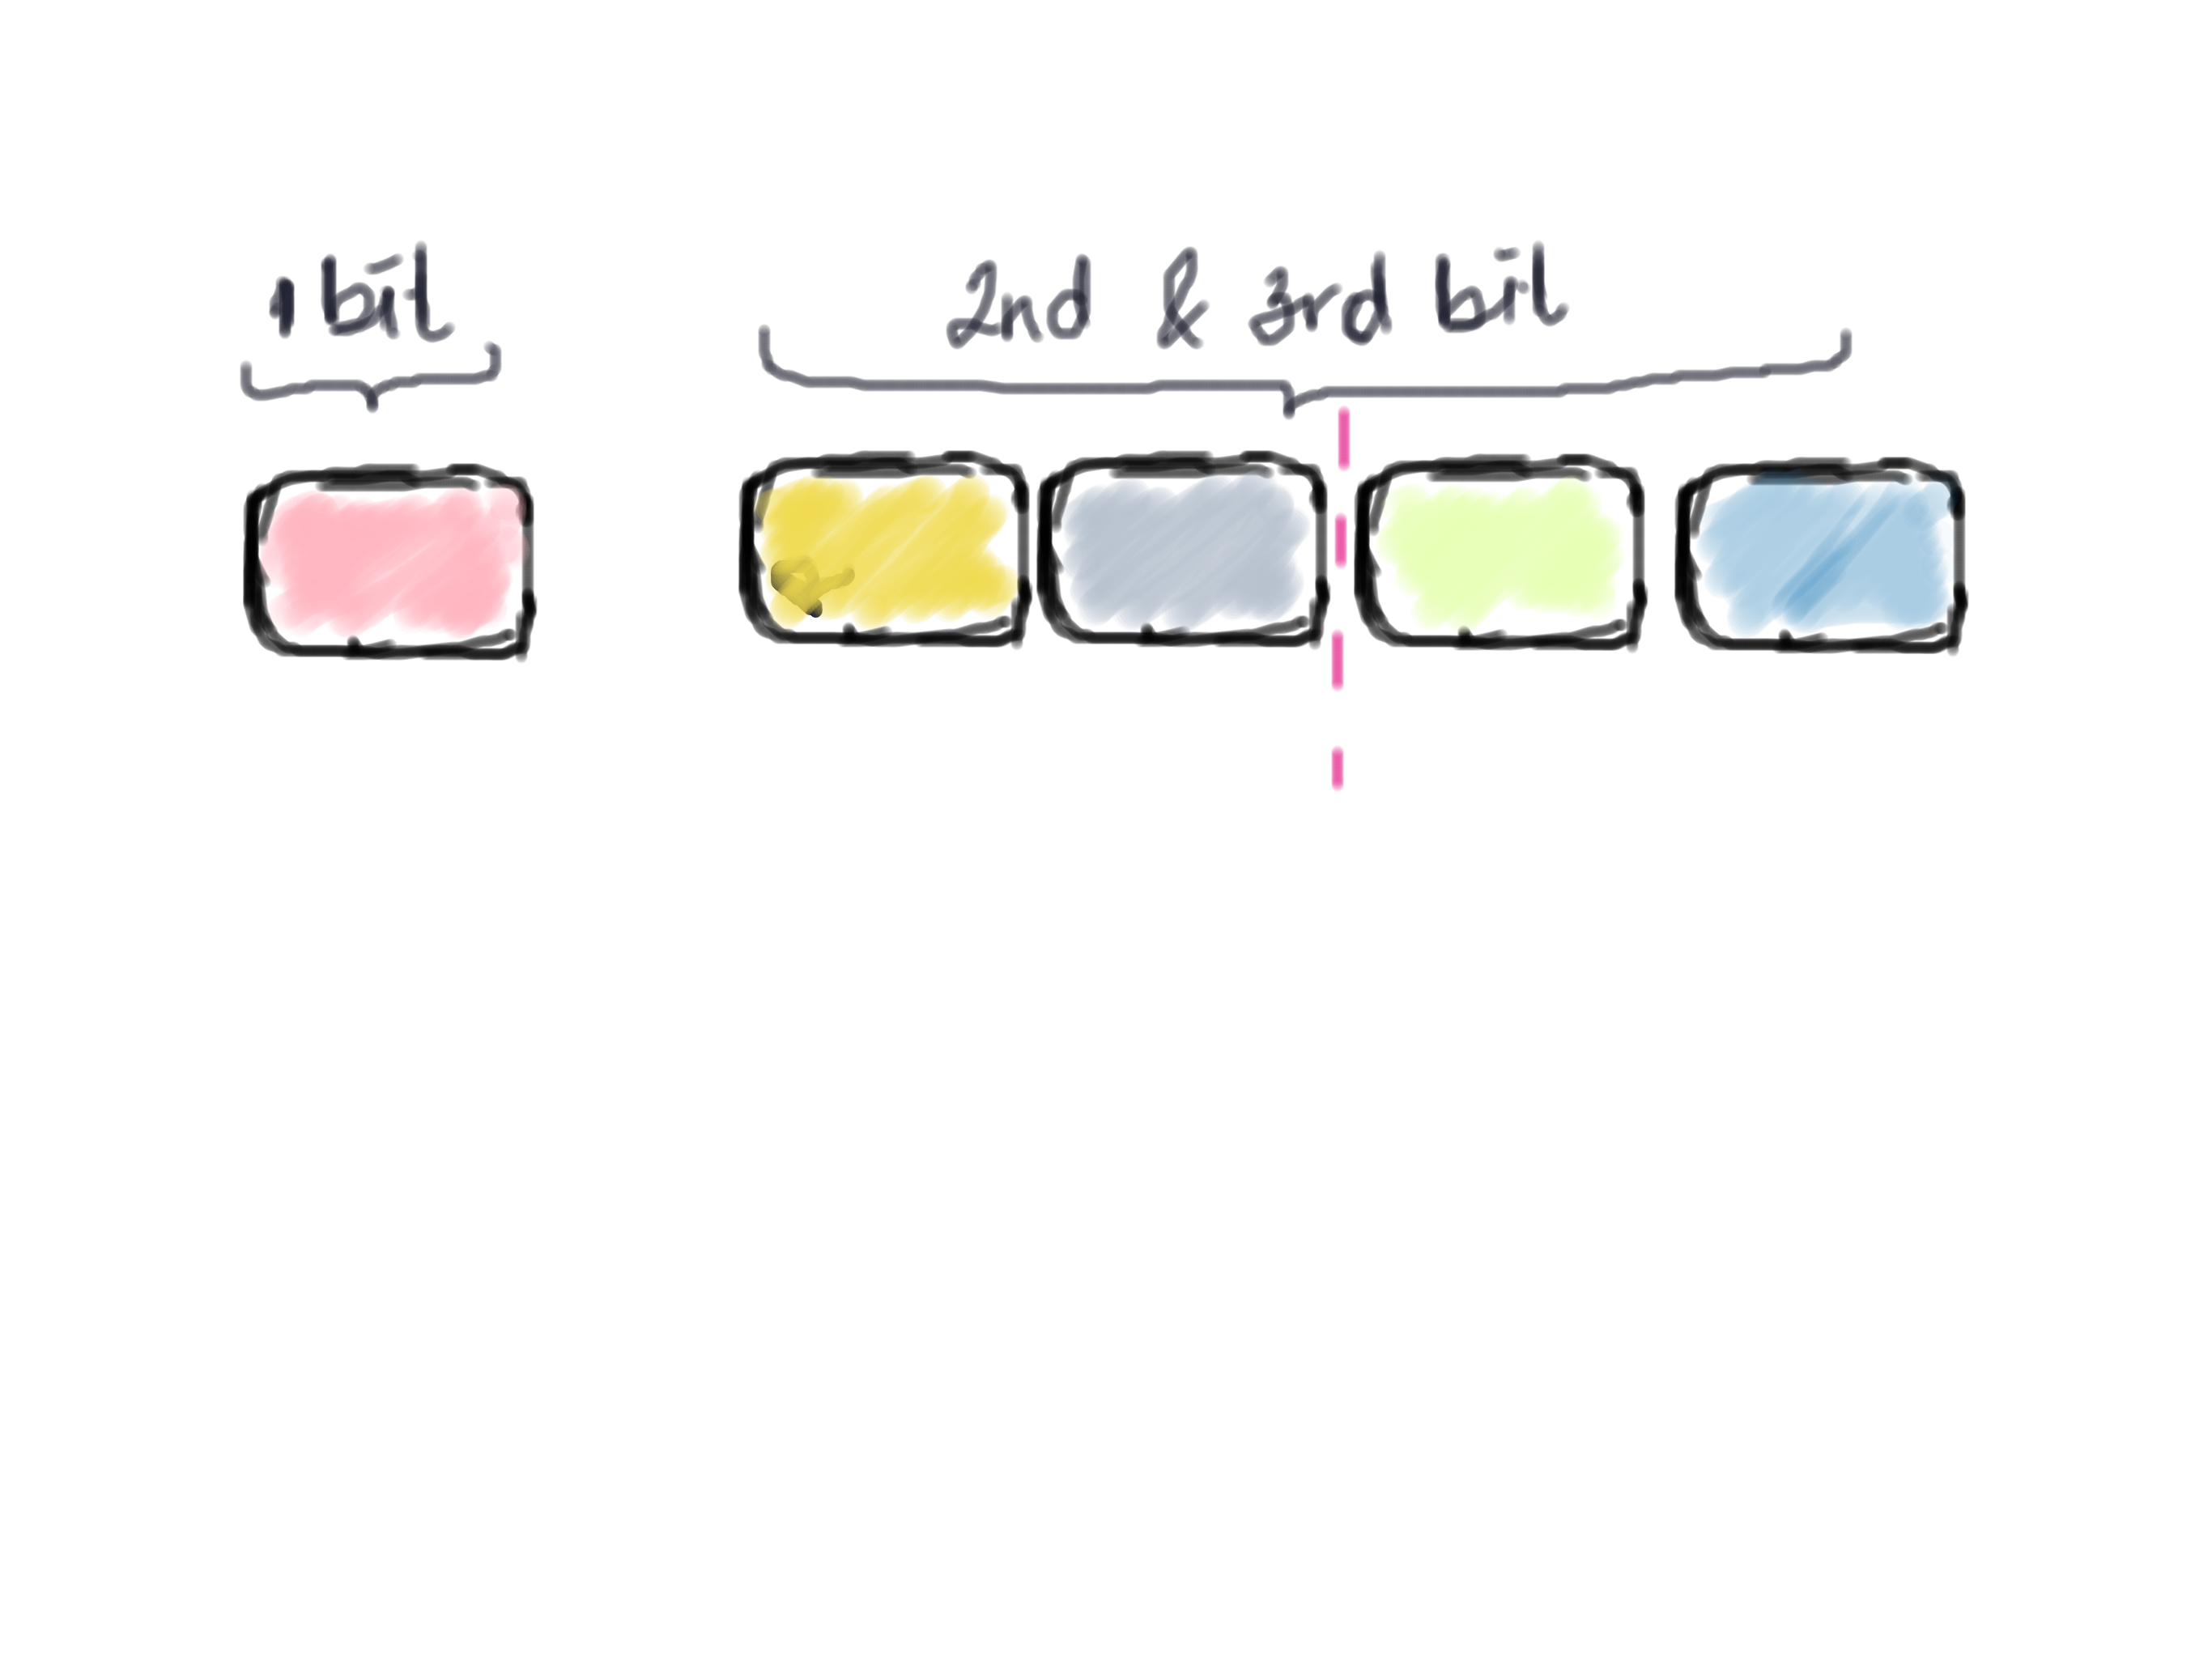 1 bit
2nd & 3rd bit